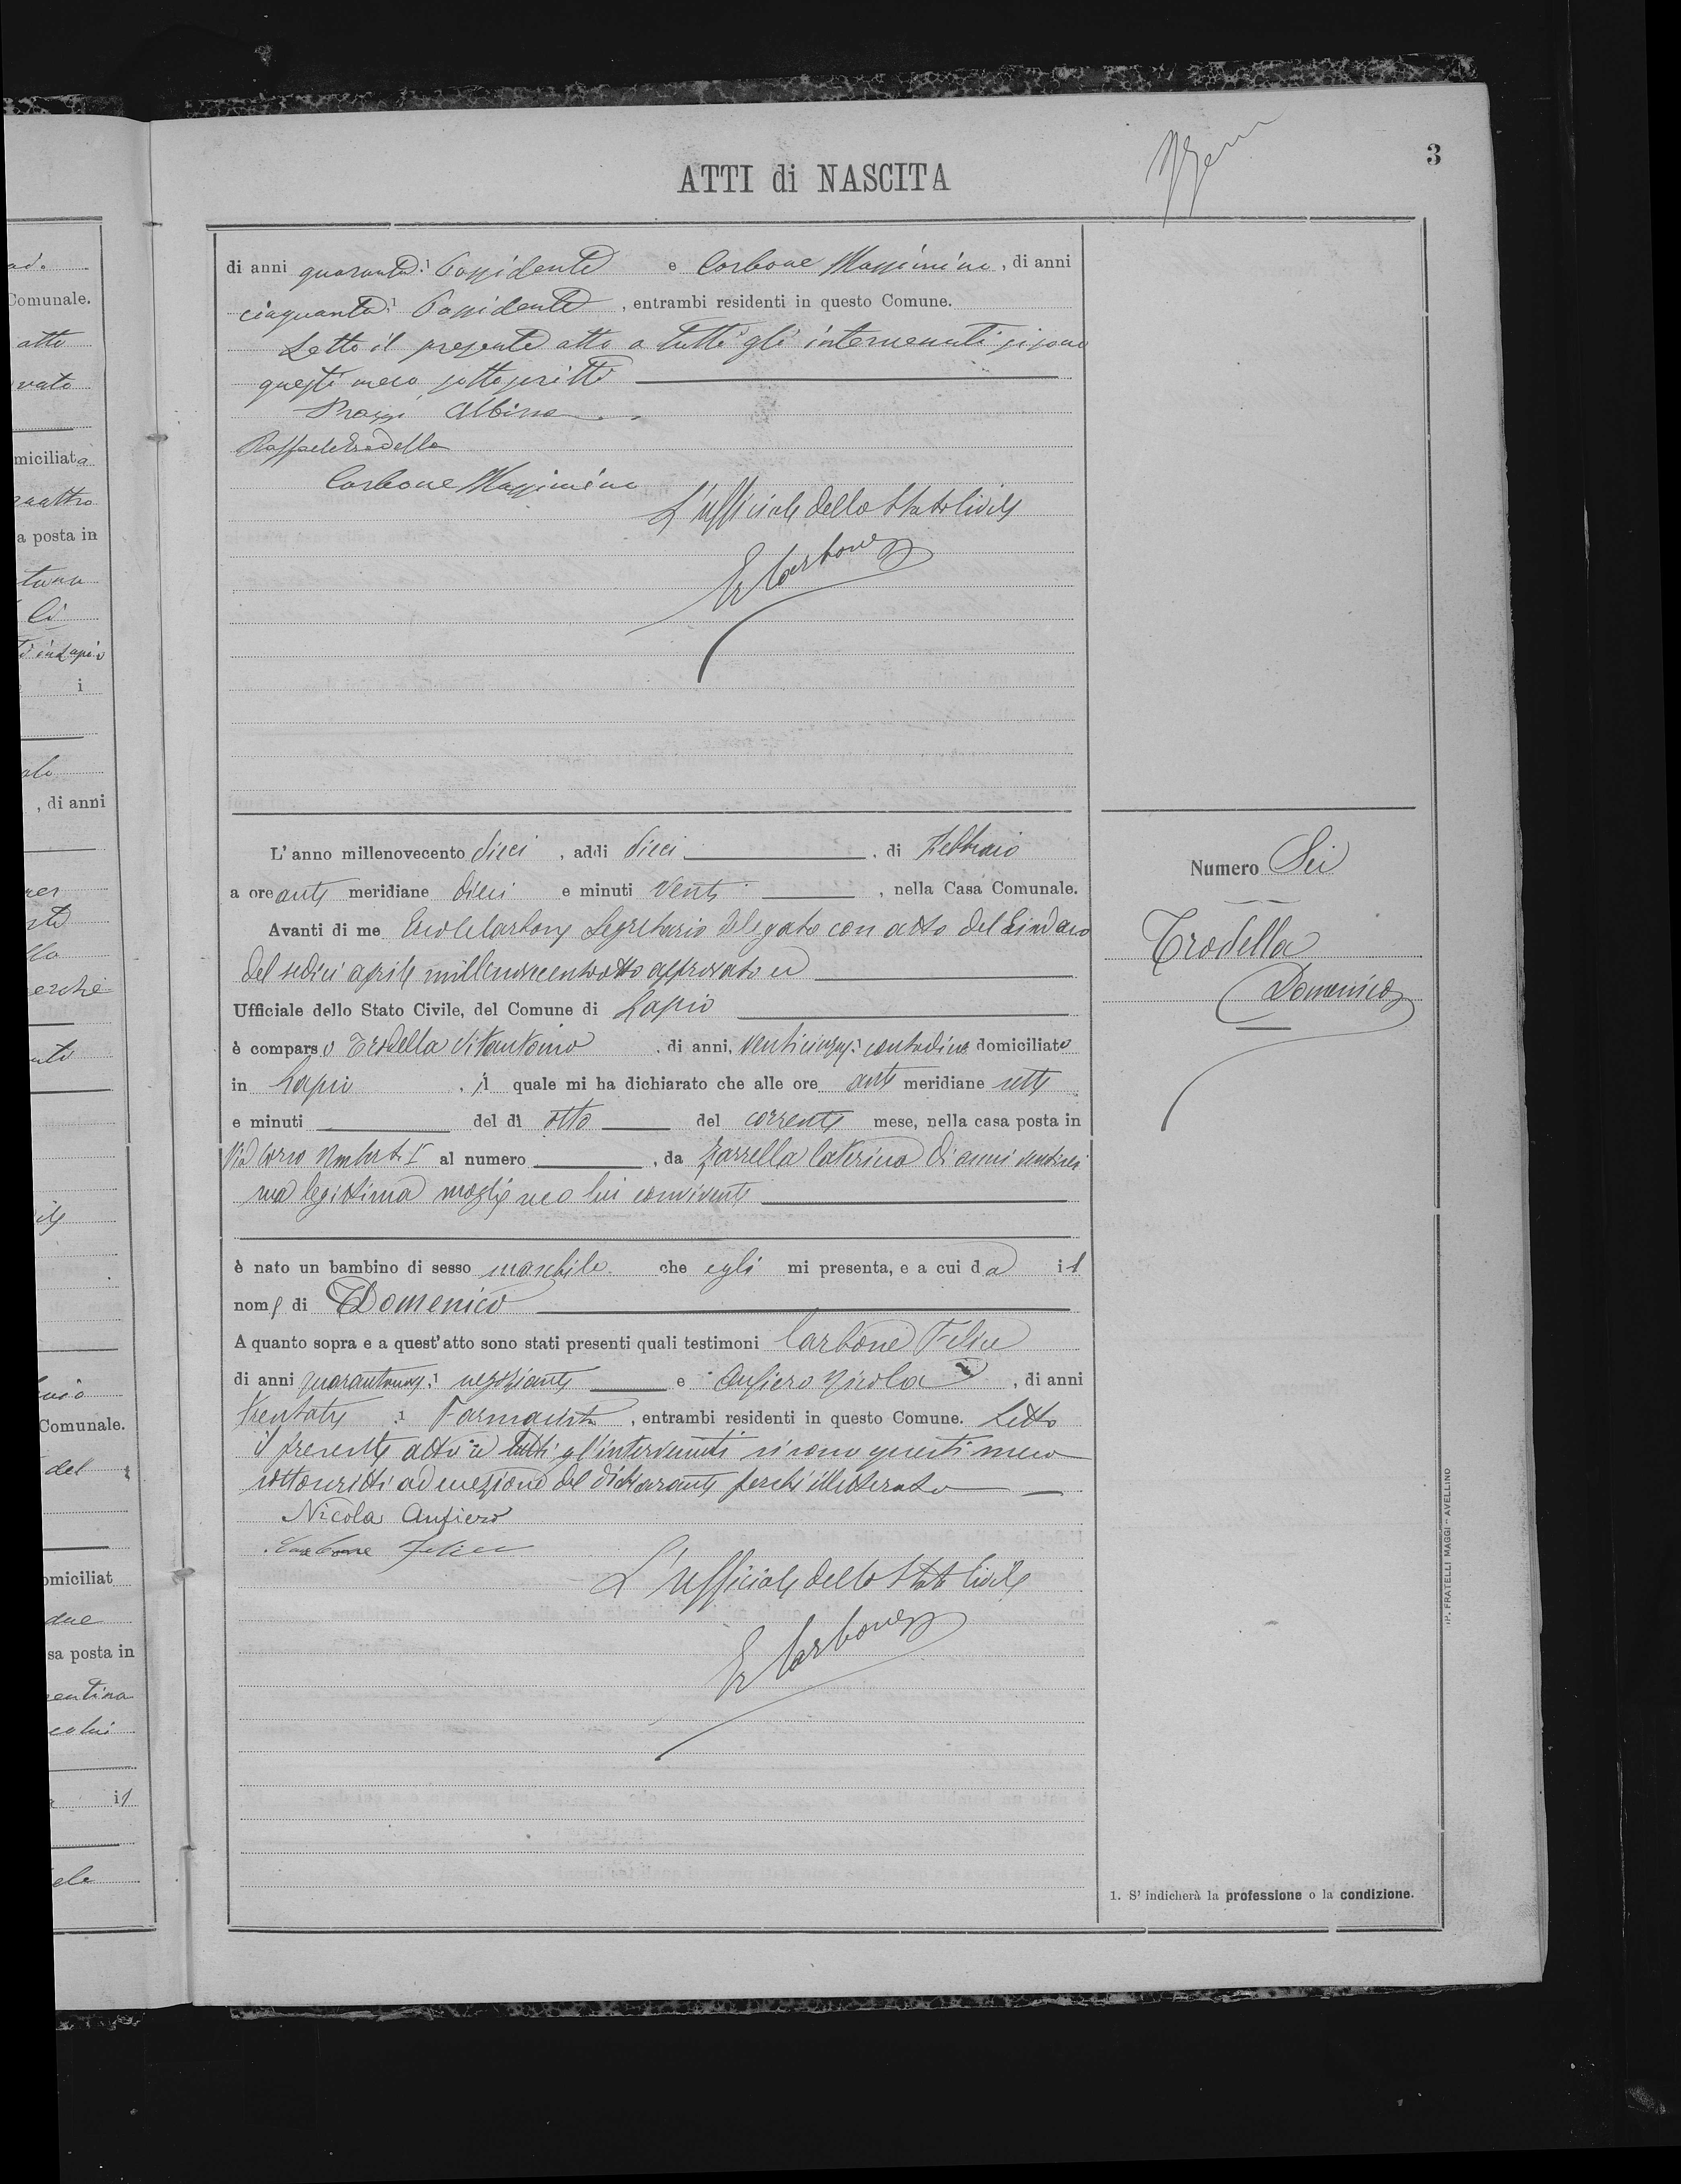 3
ATTI di NASCITA
di anni quaranta 1 Possidente e Carbone Massimino, di anni
cinquanta 1 Possidente, entrambi residenti in questo Comune.
Letto il presente atto a tutti gli intervenuti si sono
questi meco sottoscritti
Albino
Raffaele Trodella
Carbone Massimino
L'ufficiale dello Stato Civile
E Carbone
L'anno millenovecento dieci, addì dieci, di Febbraio
a ore anti meridiane dieci e minuti venti, nella Casa Comunale.
Avanti di me Ercole Carbone Segretario delegato con atto del Sindaco
del sedici aprile millenovecentootto approvato ed
Ufficiale dello Stato Civile, del Comune di Lapio
è comparso Trodella Vitantonio, di anni venticinque 1 contadino domiciliato
in Lapio, il quale mi ha dichiarato che alle ore anti meridiane sette
e minuti del dì otto del corrente mese, nella casa posta in
Via Corso Umberto I° al numero, da Zarrella Caterina di anni ventisei
sua legittima moglie seco lui convivente
è nato un bambino di sesso maschile che egli mi presenta, e a cui da il
nome di Domenico
A quanto sopra e a quest'atto sono stati presenti quali testimoni Carbone Felice
di anni quarantanove 1 negoziante e Anfiero Nicola, di anni
trentatre 1 Farmacista, entrambi residenti in questo Comune. Letto
il presente atto a tutti gl'intervenuti si sono questi meco
sottoscritti ad eccezione del dichiarante perché illetterato
Nicola Anfiero
Carbone Felice
L'ufficiale dello Stato Civile
E Carbone
Numero Sei
Trodella
Domenico
1. S' indicherà la professione o la condizione.
TIP. FRATELLI MAGGI - AVELLINO
ad.
Comunale.
atto
vato
miciliata
quattro
a posta in
Ci
i
, di anni
erchè
Comunale.
del
omiciliat
due
sa posta in
entina
co lui
il